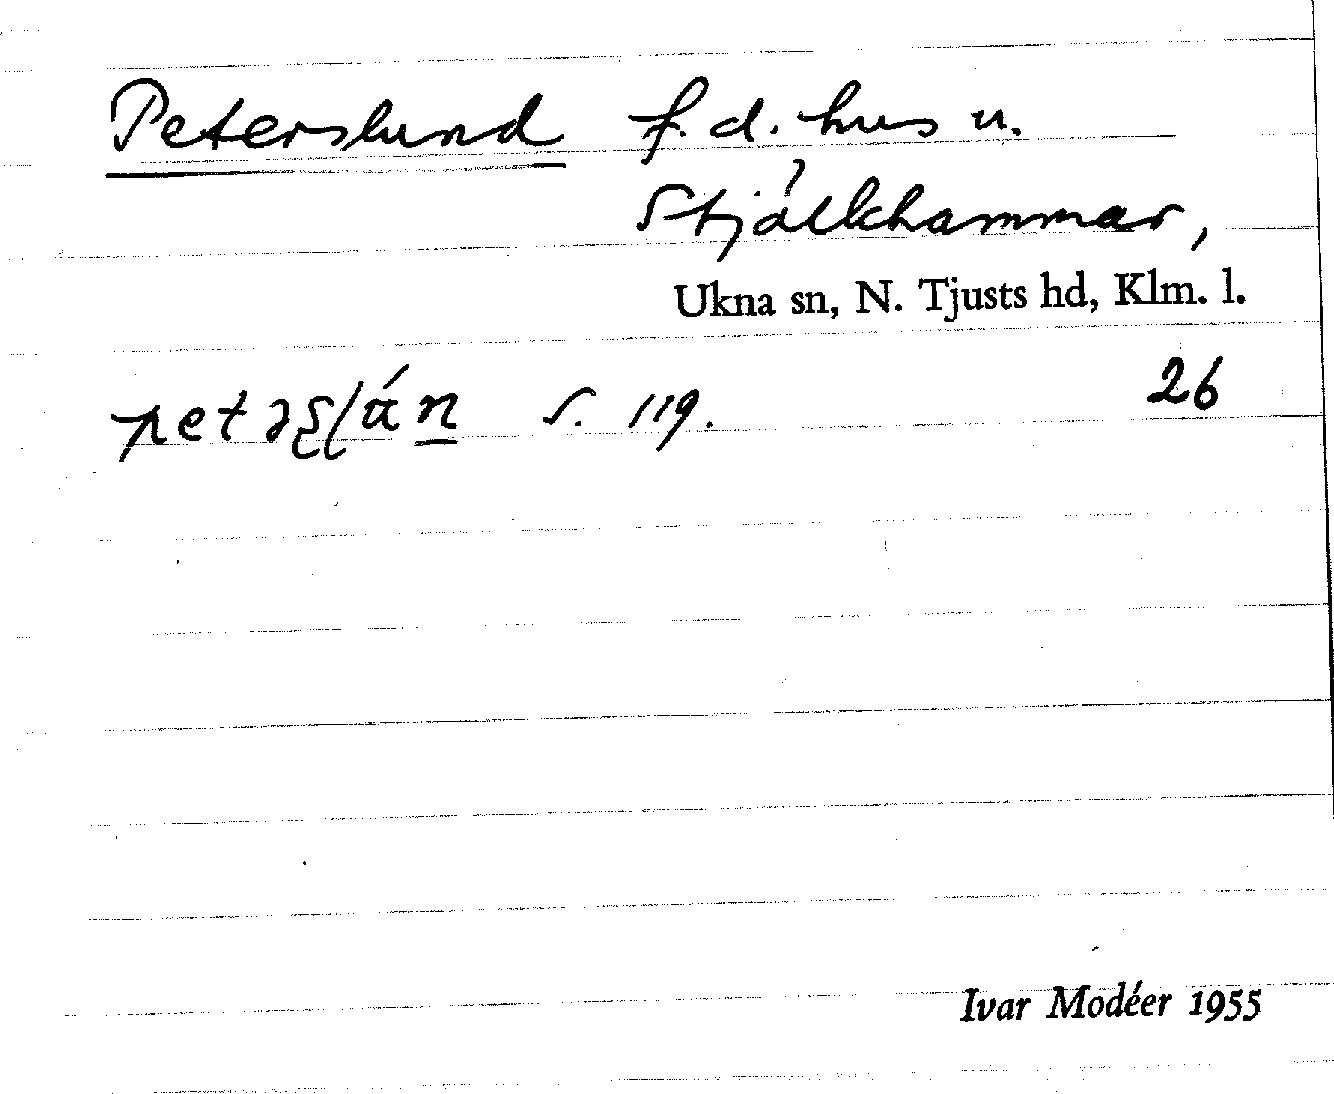 Peterslund f. d. hus u.
Stjälkhammar,
Ukna sn, N. Tjusts hd, Klm. l.
26
s. 119.
Ivar Modéer 1955